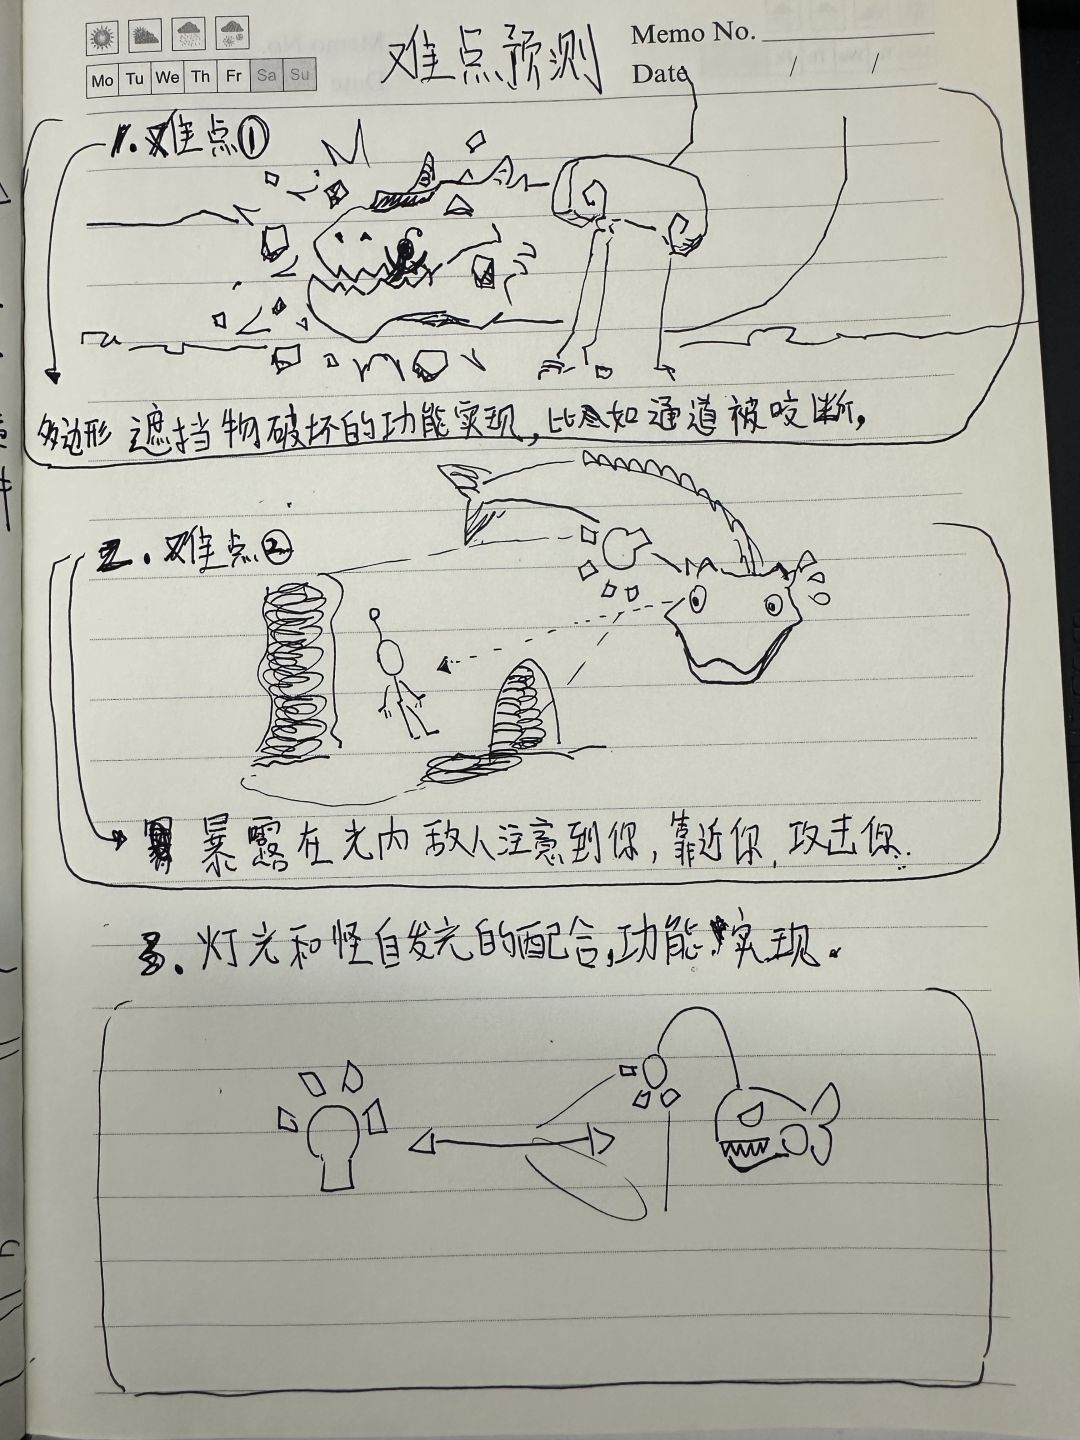 难点预测
Memo No.
Mo Tu We Th Fr Sa Su
Date / /
1.难点①
多边形遮挡物破坏的功能实现,比如通道被咬断,
2.难点②
暴露在光内敌人注意到你,靠近你,攻击你.
3.灯光和怪自发光的配合,功能实现。